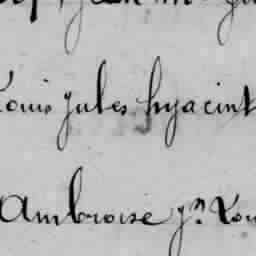 Louis Jules hyacint
Ambroise Jn Lou